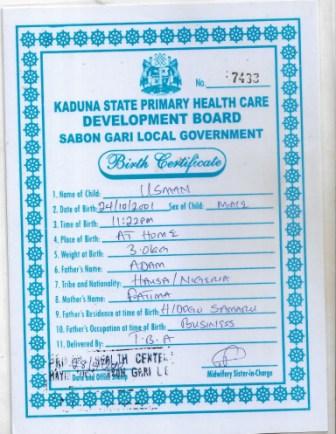 No. 7433
KADUNA STATE PRIMARY HEALTH CARE
DEVELOPMENT BOARD
SABON GARI LOCAL GOVERNMENT
Birth Certificate
1. Name of Child: USMAN
2. Date of Birth: 24/10/2001 Sex of Child: MALE
3. Time of Birth: 11:22pm
4. Place of Birth: AT HOME
5. Weight at Birth: 3.0KG
6. Father's Name: ADAM
7. Tribe and Nationality: HAUSA/NIGERIA
8. Mother's Name: FATIMA
9. Father's Residence at time of Birth: SAMARU
10. Father's Occupation at time of Birth: BUSINESS
11. Delivered By: T.B.A
HEALTH CENTER
GARI
Date and Office Stamp Midwifery Sister-in-Charge